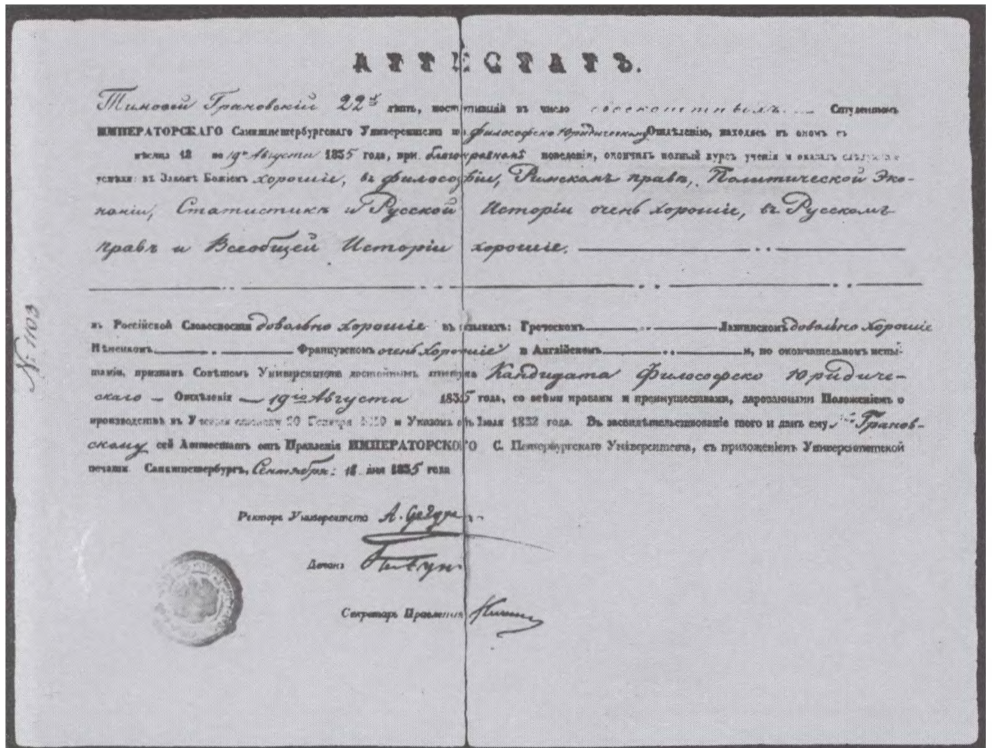 АТТЕСТАТЪ.
Тимофѣй Грановскій 22хъ лѣтъ, поступившій въ число Студентовъ
ИМПЕРАТОРСКАГО Санктпетербургскаго Университета по философско Юридическому Отдѣленію, находясь въ ономъ съ
12 по 19е Августа 1835 года, при благонравномъ поведеніи, окончилъ полный курсъ ученія и оказалъ
успѣхи: въ Законѣ Божіемъ хорошіе, въ философіи, Римскомъ правѣ, Политической Эко-
номіи, Статистикѣ и Русской Исторіи очень хорошіе, въ Русскомъ
правѣ и Всеобщей Исторіи хорошіе.
№ 1103
въ Россійской Словесности довольно хорошіе въ языкахъ: Греческомъ Латинскомъ довольно хорошіе
Нѣмецкомъ Французскомъ очень хорошіе и Англійскомъ и, по окончательномъ испы-
таніи, признанъ Совѣтомъ Университета достойнымъ аттестата Кандидата Философско Юридиче-
скаго Отдѣленія 19го Августа 1835 года, со всѣми правами и преимуществами, дарованными Положеніемъ о
производствѣ въ Ученыя и Указомъ Іюля 1832 года. Въ засвидѣтельствованіе того и данъ ему Гранов-
скому сей Аттестатъ отъ Правленія ИМПЕРАТОРСКАГО С. Петербургскаго Университета, съ приложеніемъ Университетской
печати Санктпетербургъ, Сентября: 18 дня 1835 года
Ректоръ Университета
Деканъ
Секретарь Правленія